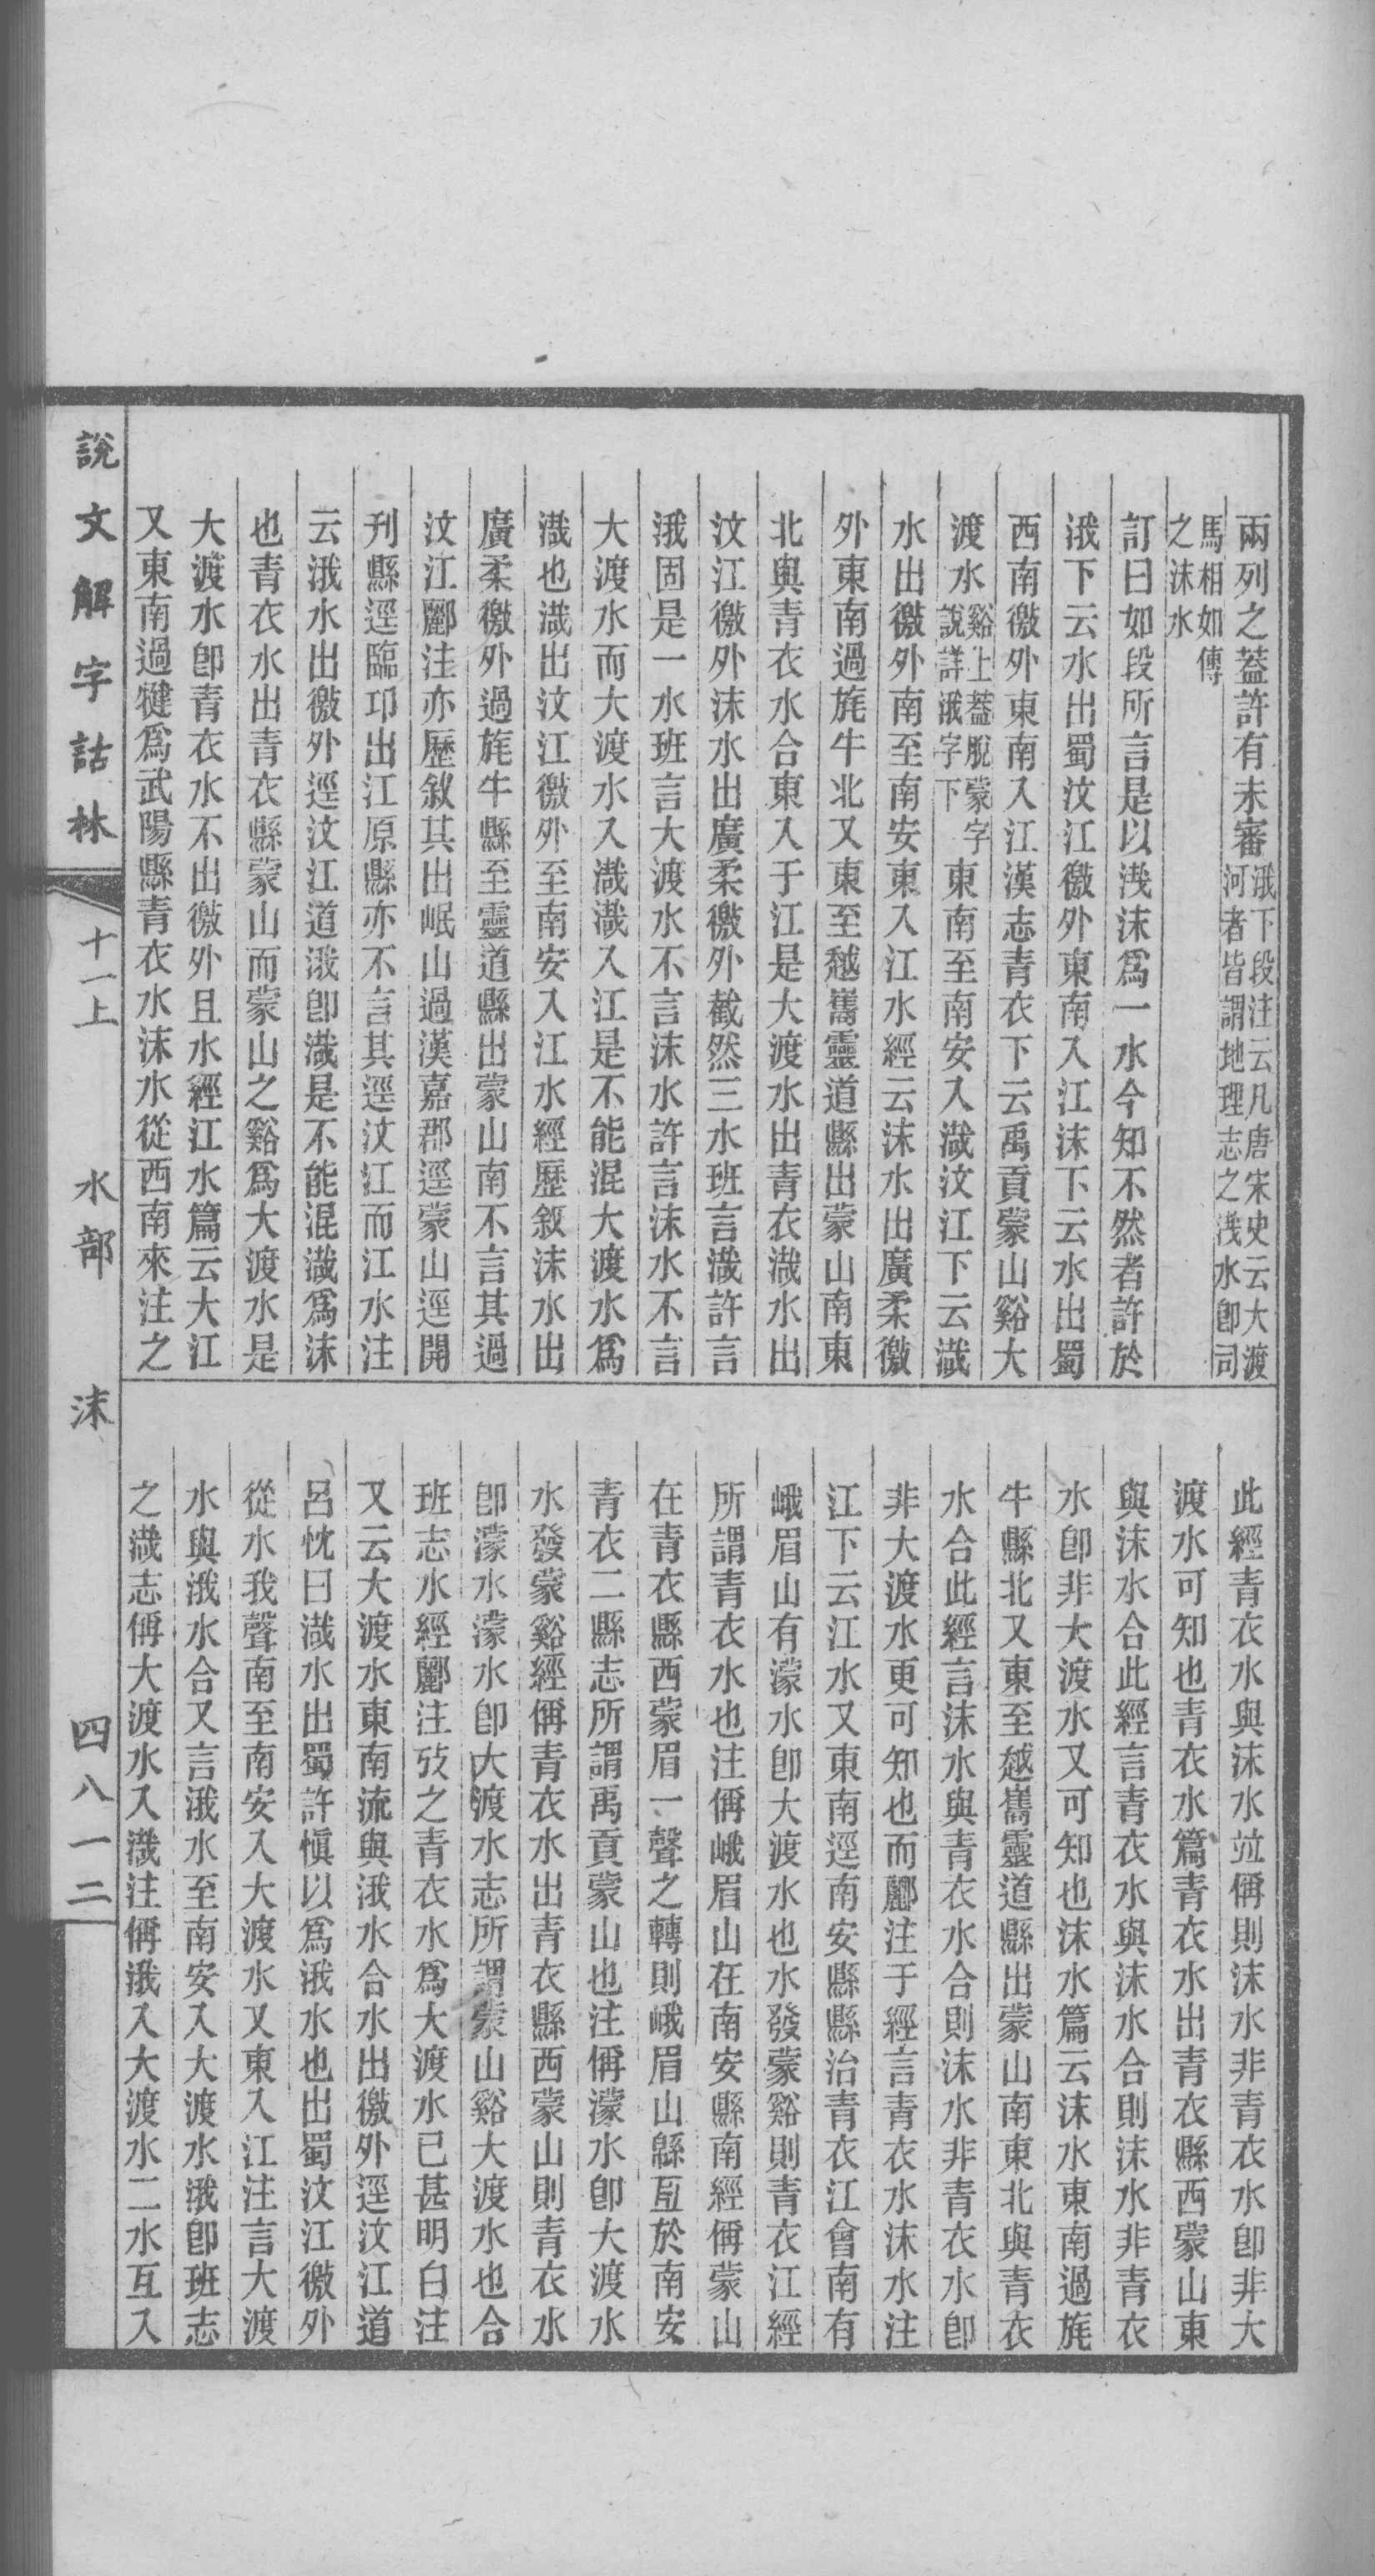 兩列之蓋許有未審涐下段注云凡唐宋史云大渡河者皆謂地理志之渽水卽司
馬相如傳之沫水
訂曰如段所言是以渽沫爲一水今知不然者許於
涐下云水出蜀汶江徼外東南入江沫下云水出蜀
西南徼外東南入江漢志青衣下云禹貢蒙山谿大
渡水谿上蓋脫蒙字說詳涐字下東南至南安入渽汶江下云渽
水出徼外南至南安東入江水經云沫水出廣柔徼
外東南過旄牛北又東至越巂靈道縣出蒙山南東
北與青衣水合東入于江是大渡水出青衣渽水出
汶江徼外沫水出廣柔徼外截然三水班言渽許言
涐固是一水班言大渡水不言沫水許言沫水不言
大渡水而大渡水入渽渽入江是不能混大渡水爲
渽也渽出汶江徼外至南安入江水經歷敘沫水出
廣柔徼外過旄牛縣至靈道縣出蒙山南不言其過
汶江酈注亦歷敘其出岷山過漢嘉郡逕蒙山逕開
刊縣逕臨邛出江原縣亦不言其逕汶江而江水注
云涐水出徼外逕汶江道涐卽渽是不能混渽爲沫
也青衣水出青衣縣蒙山而蒙山之谿爲大渡水是
大渡水卽青衣水不出徼外且水經江水篇云大江
又東南過犍爲武陽縣青衣水沫水從西南來注之
此經青衣水與沫水竝偁則沫水非青衣水卽非大
渡水可知也青衣水篇青衣水出青衣縣西蒙山東
與沫水合此經言青衣水與沫水合則沫水非青衣
水卽非大渡水又可知也沫水篇云沫水東南過旄
牛縣北又東至越巂靈道縣出蒙山南東北與青衣
水合此經言沫水與青衣水合則沫水非青衣水卽
非大渡水更可知也而酈注于經言青衣水沫水注
江下云江水又東南逕南安縣縣治青衣江會南有
峨眉山有濛水卽大渡水也水發蒙谿則青衣江經
所謂青衣水也注偁峨眉山在南安縣南經偁蒙山
在青衣縣西蒙眉一聲之轉則峨眉山緜亙於南安
青衣二縣志所謂禹貢蒙山也注偁濛水卽大渡水
水發蒙谿經偁青衣水出青衣縣西蒙山則青衣水
卽濛水濛水卽大渡水志所謂蒙山谿大渡水也合
班志水經酈注攷之青衣水爲大渡水已甚明白注
又云大渡水東南流與涐水合水出徼外逕汶江道
呂忱曰渽水出蜀許愼以爲涐水也出蜀汶江徼外
從水我聲南至南安入大渡水又東入江注言大渡
水與涐水合又言涐水至南安入大渡水涐卽班志
之渽志偁大渡水入渽注偁涐入大渡水二水互入
說文解字詁林 十一上 水部 沫 四八一二